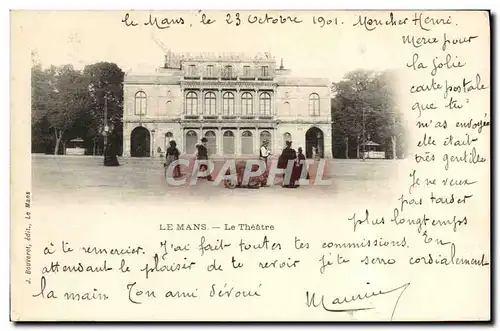 le Mans, le 23 Octobre 1901. Mon cher Henri.
Merci pour
la jolie
carte postale
que tu
m'as envoyée
elle était
très gentille
Je ne veux
pas tarder
plus longtemps
LE MANS. — Le Théâtre
à te remercier. J'ai fait toutes tes commissions. En
attendant le plaisir de te revoir je te serre cordialement
la main Ton ami dévoué
Maurice
J. Bouveret, édit., Le Mans
CARTPHILIUM